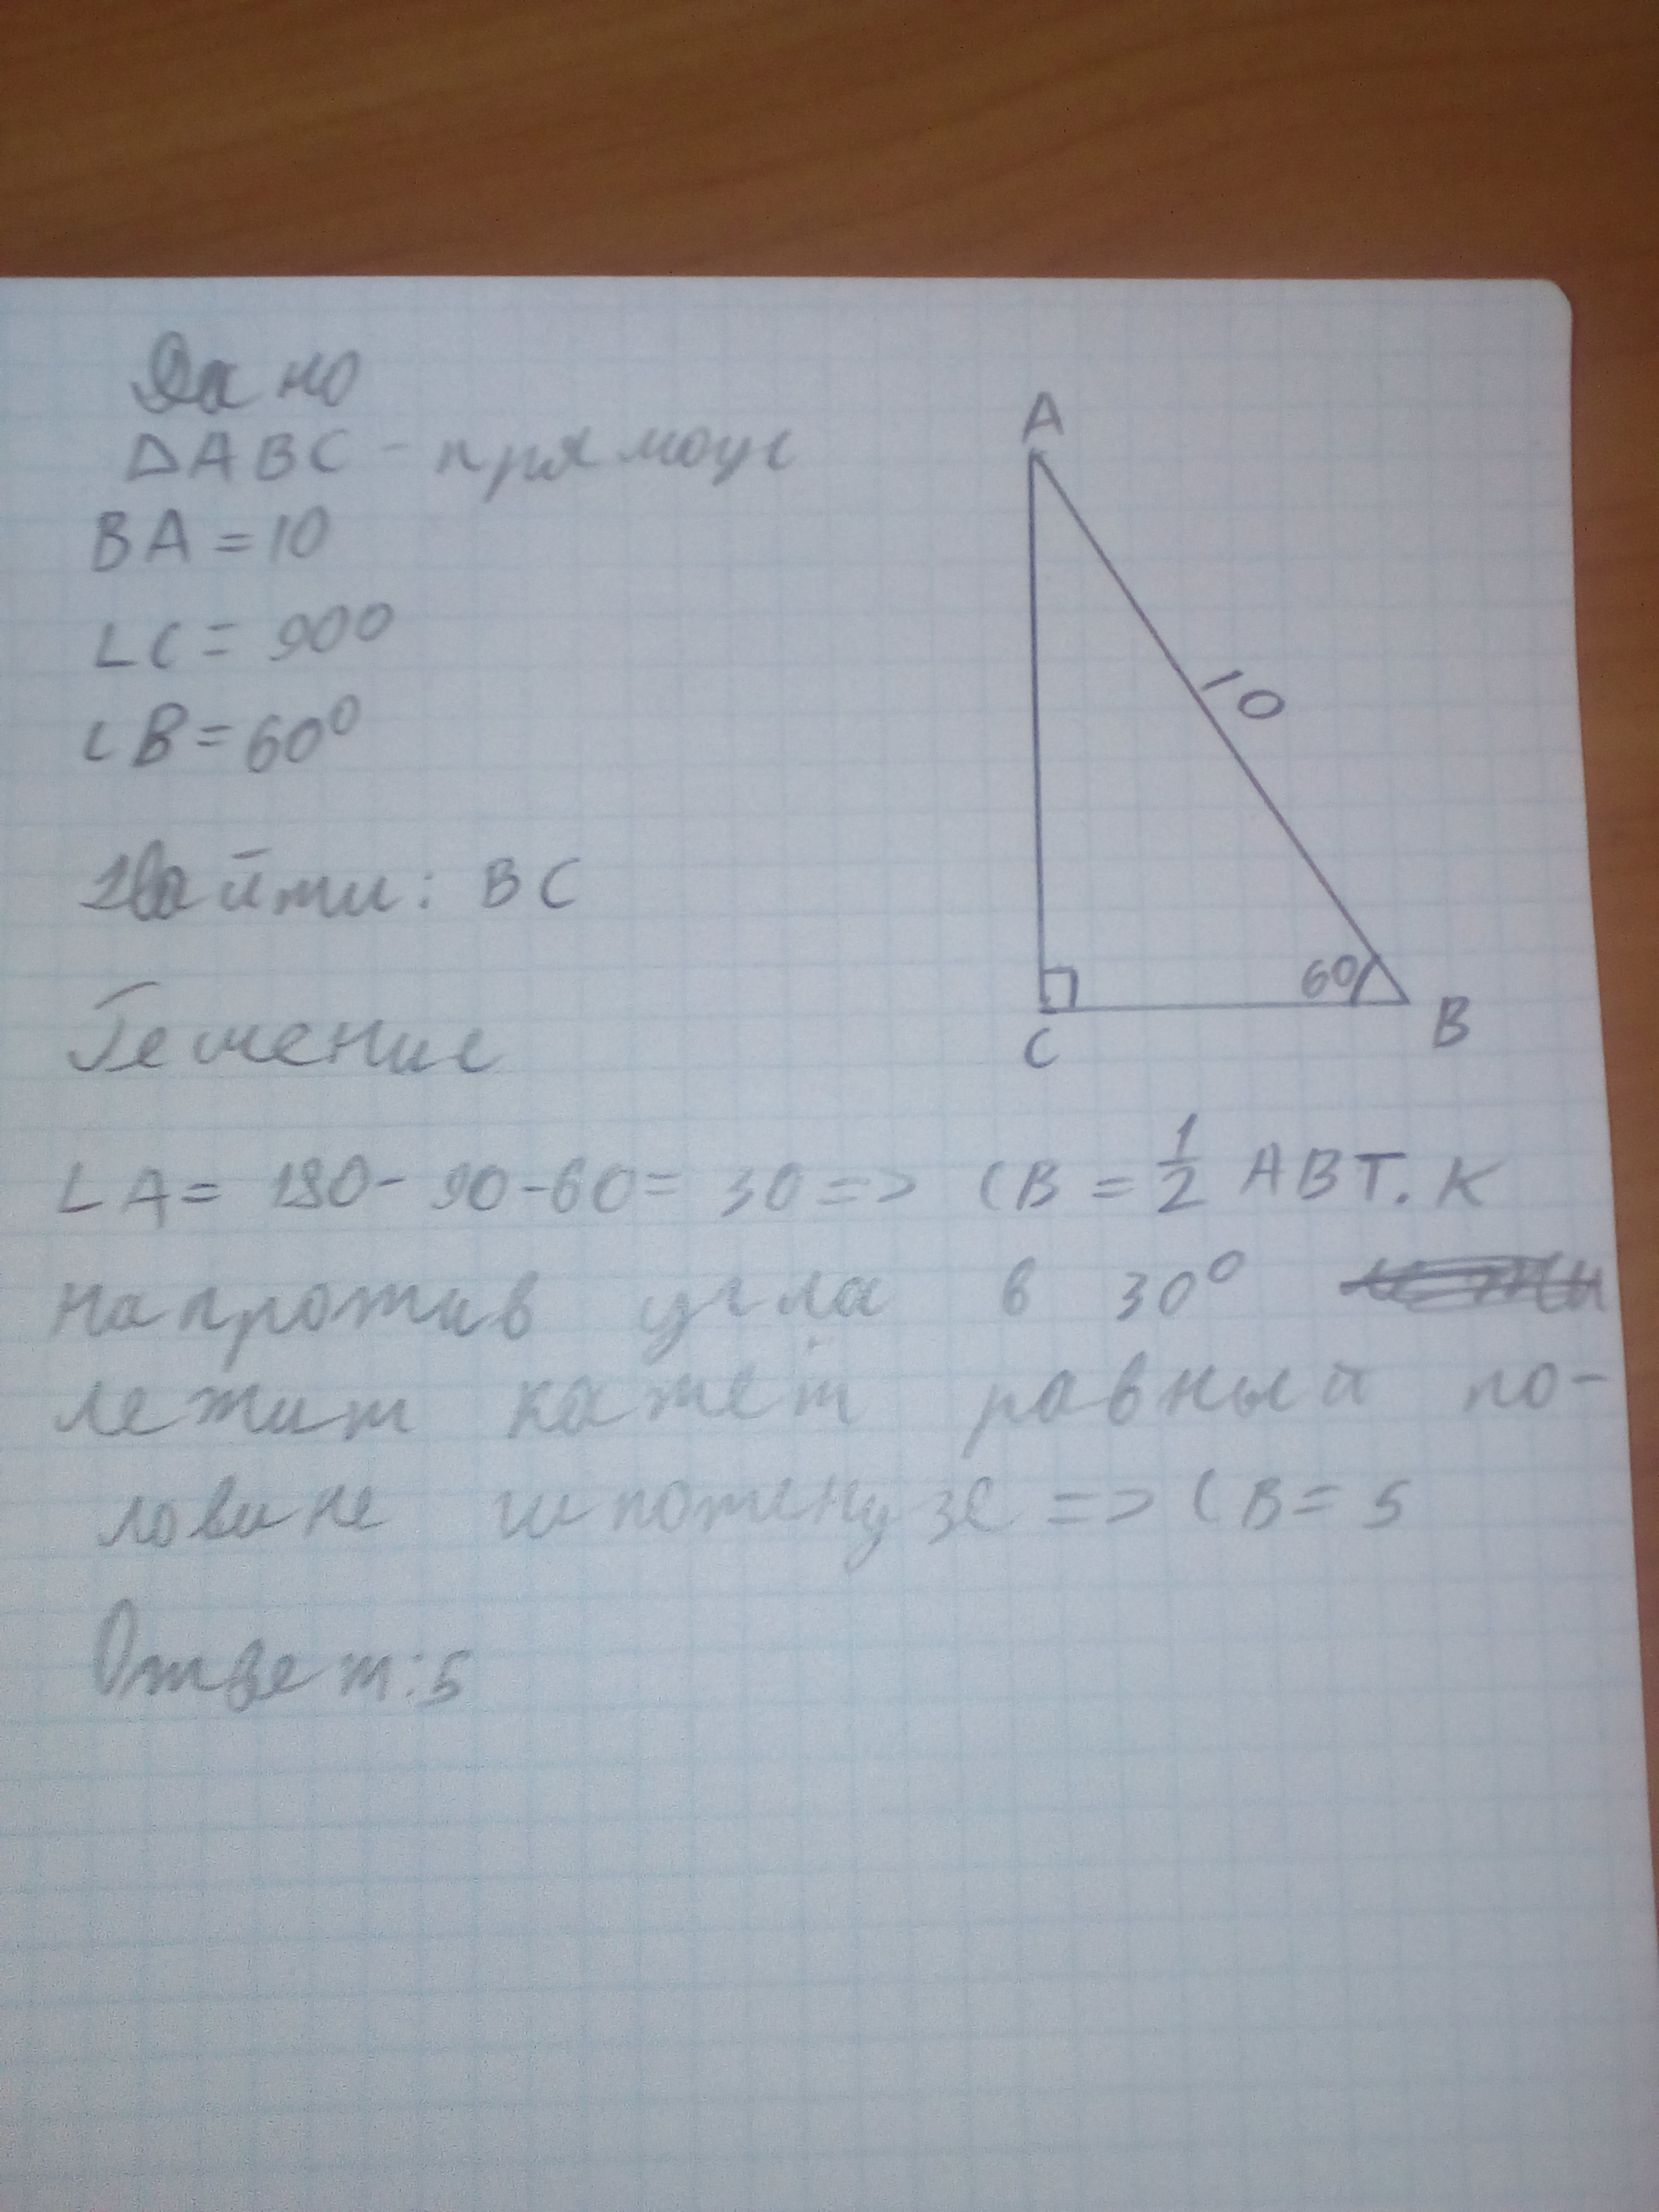 Дано
△ABC - прямоуг
BA = 10
∠C = 90°
∠B = 60°
Найти: BC
Решение
∠A = 180 - 90 - 60 = 30 => CB = 1/2 AB т. к
напротив угла в 30°
лежит катет равный по-
ловине гипотенузе => CB = 5
Ответ: 5
A
10
60
C
B